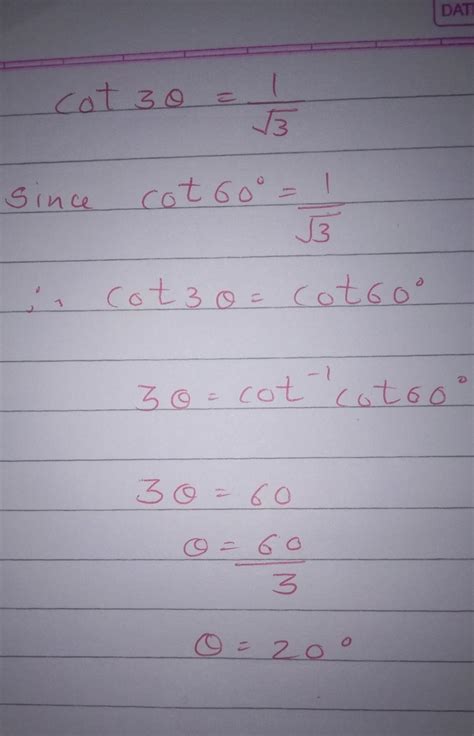 DAT
cot 3θ = 1/√3
Since cot 60° = 1/√3
∴ cot 3θ = cot 60°
3θ = cot⁻¹ cot 60°
3θ = 60
θ = 60/3
θ = 20°